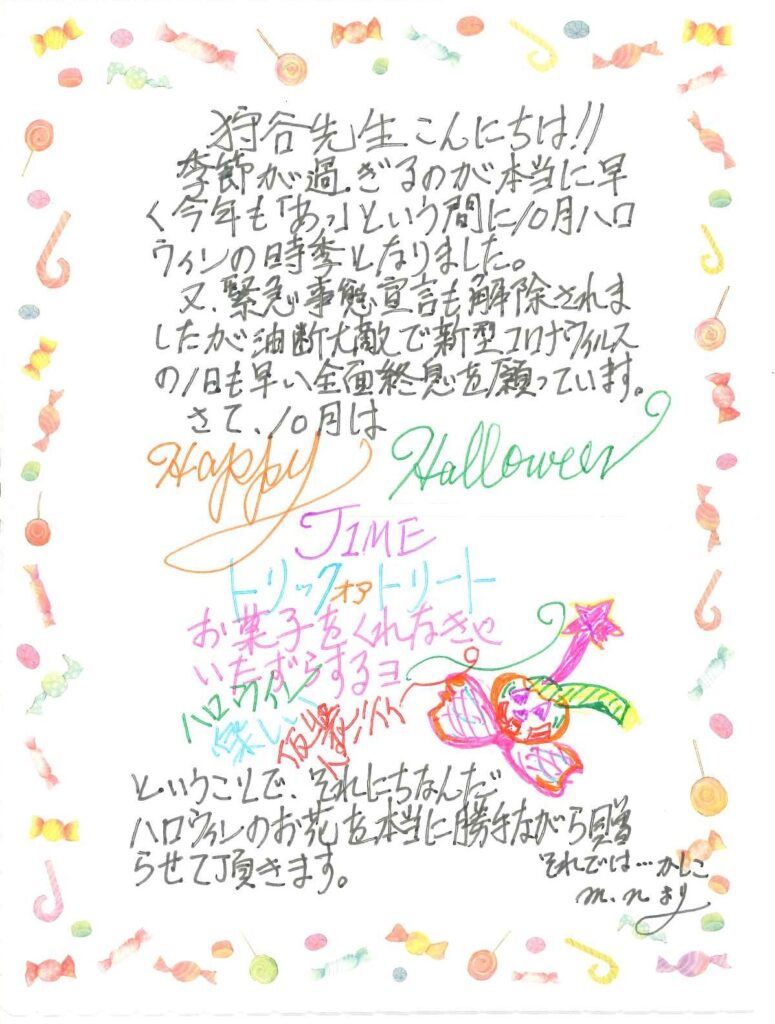 狩谷先生こんにちは!!
季節が過ぎるのが本当に早
く今年も「あっ」という間に10月ハロ
ウィンの時季となりました。
又、緊急事態宣言も解除されま
したが油断大敵で新型コロナウィルス
の1日も早い全面終息を願っています。
さて、10月は
Happy Halloween
TIME
トリックォアトリート
お菓子をくれなきゃ
いたずらするヨ
ハロウィン
楽しい
仮装
ということで、それにちなんだ
ハロウィンのお花を本当に勝手ながら贈
らせて頂きます。
それでは…かしこ
m.n まり